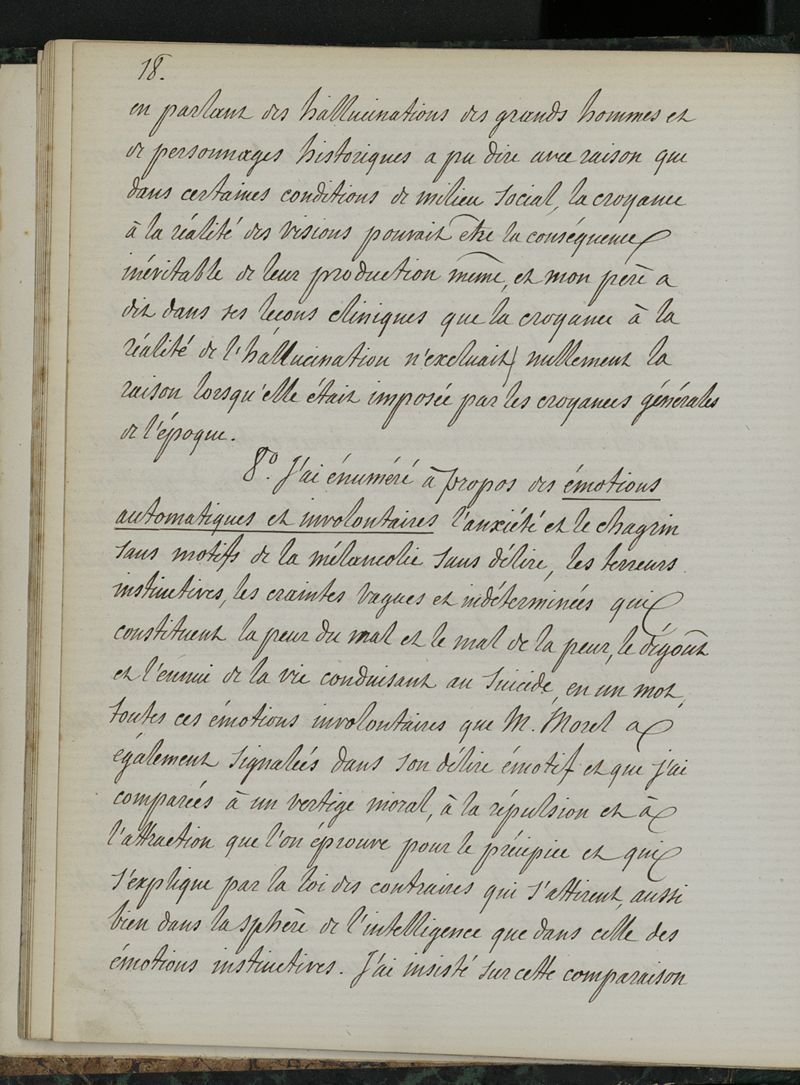 18.
en parlant des hallucinations des grands hommes et
de personnages historiques a pu dire avec raison que
dans certaines conditions de milieu social, la croyance
à la réalité des visions pouvait être la conséquence
inévitable de leur production même, et mon père a
dit dans ses leçons cliniques que la croyance à la
réalité de l'hallucination n'excluait nullement la
raison lorsqu'elle était imposée par les croyances générales
de l'époque.
8º. J'ai énuméré à propos des émotions
automatiques et involontaires l'anxiété et le chagrin
sans motifs de la mélancolie sans délire, les terreurs
instinctives, les craintes vagues et indéterminées qui
constituent la peur du mal et le mal de la peur, le dégoût
et l'ennui de la vie conduisant au suicide, en un mot,
toutes ces émotions involontaires que M. Morel a
également signalées dans son délire émotif et que j'ai
comparées à un vertige moral, à la répulsion et à
l'attraction que l'on éprouve pour le précipice et qui
s'explique par la loi des contraires qui s'attirent, aussi
bien dans la sphère de l'intelligence que dans celle des
émotions instinctives. J'ai insisté sur cette comparaison